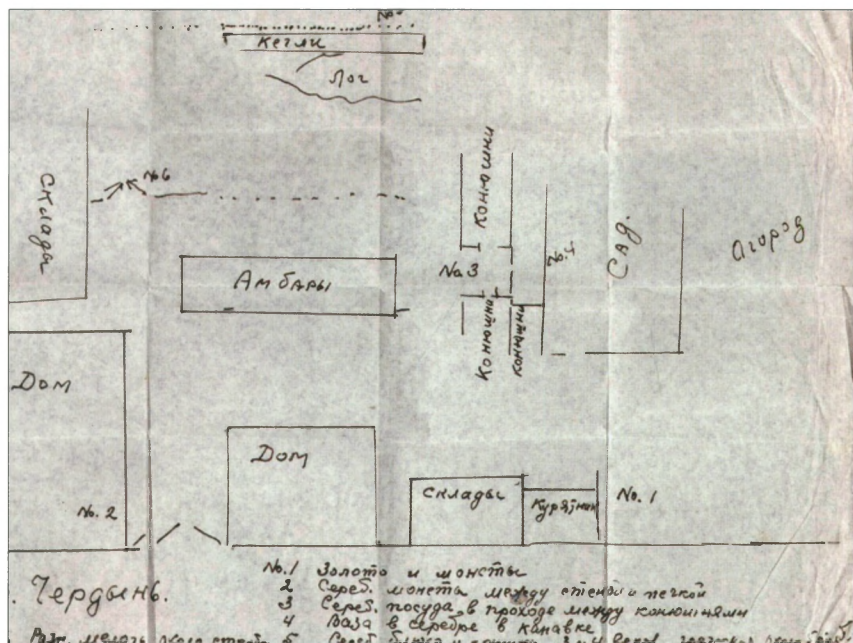 No.
кегли
Лог
Склады
No 6
Конюшни
No 3
No.4
САД.
Огород
Амбары
Конюшня
конюшни
Дом
No. 2
Дом
склады
Курятник
No. 1
No.1 Золото и монеты
. Чердынь.
2 Сереб. монеты между стеной и печкой
3 Сереб. посуда в проходе между конюшнями
4 Ваза в серебре в канавке
мелочь около 5 Сереб.